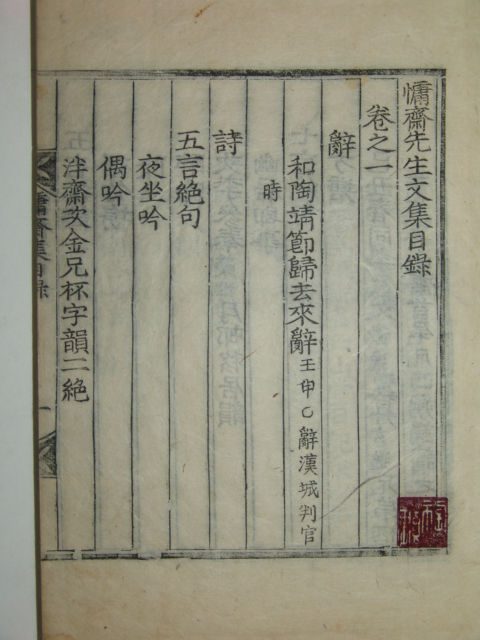 慵齋先生文集目錄
卷之一
辭
和陶靖節歸去來辭 壬申乞辭漢城判官
時
詩
五言絶句
夜坐吟
偶吟
泮齋次金兄杯字韻二絶
慵齋集目錄
一